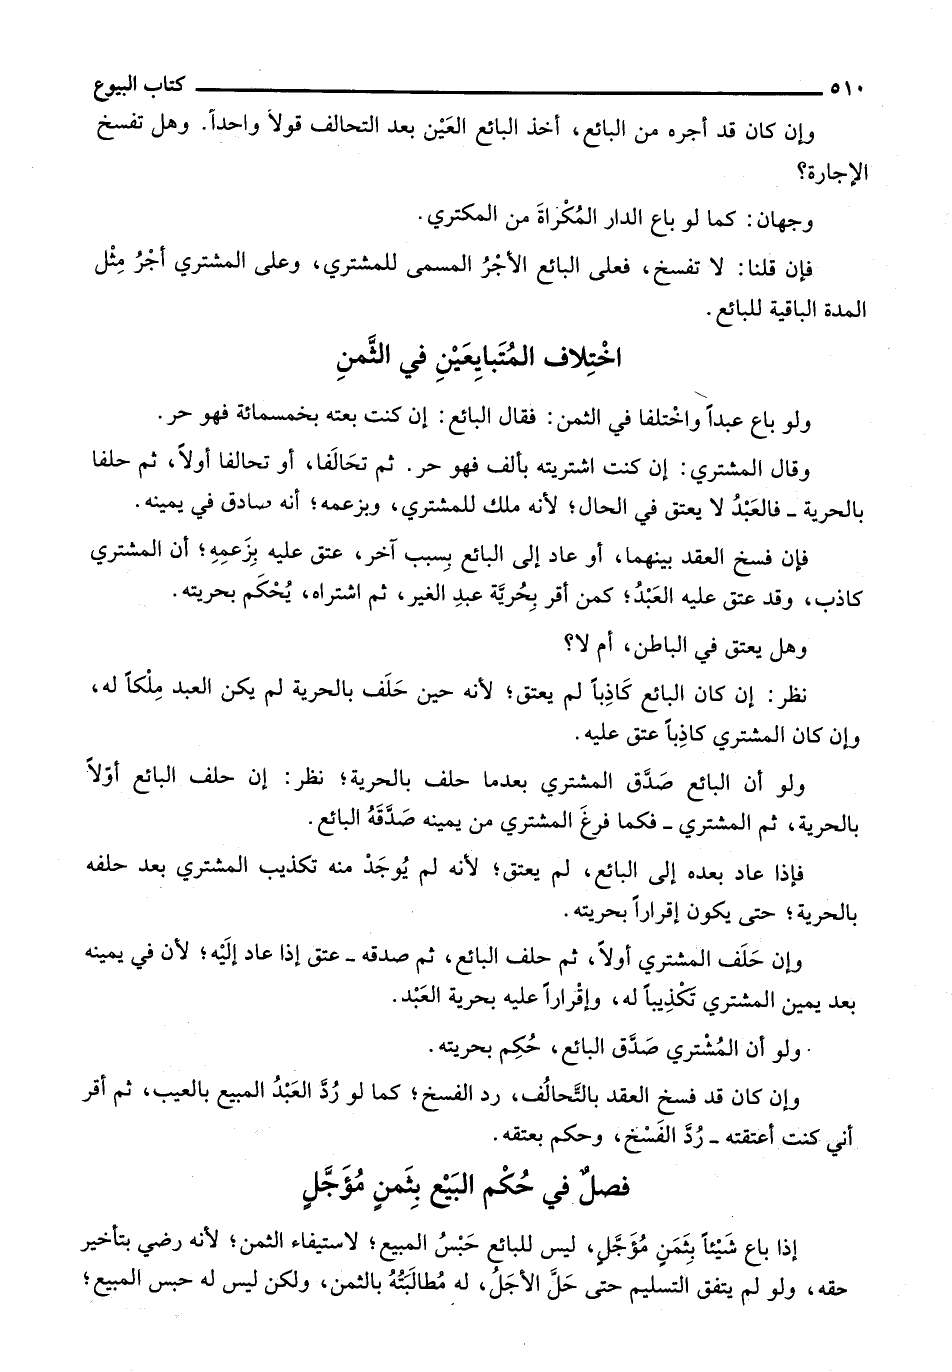 ٥١٠ كتاب البيوع
وإن كان قد أجره من البائع، أخذ البائع العَيْن بعد التحالف قولاً واحداً. وهل تفسخ
الإجارة؟
وجهان: كما لو باع الدار المُكْراةَ من المكتري.
فإن قلنا: لا تفسخ، فعلى البائع الأجْرُ المسمى للمشتري، وعلى المشتري أجْرُ مِثْل
المدة الباقية للبائع.
اخْتِلاف المُتَبايِعَيْنِ في الثَّمنِ
ولو باع عبداً واخْتلفا في الثمن: فقال البائع: إن كنت بعته بخمسمائة فهو حر.
وقال المشتري: إن كنت اشتريته بألف فهو حر. ثم تحَالَفا، أو تحالفا أولاً، ثم حلفا
بالحرية ـ فالعَبْدُ لا يعتق في الحال؛ لأنه ملك للمشتري، وبزعمه؛ أنه صادق في يمينه.
فإن فسخ العقد بينهما، أو عاد إلى البائع بِسبب آخر، عتق عليه بِزَعمِهِ؛ أن المشتري
كاذب، وقد عتق عليه العَبْدُ؛ كمن أقر بِحُريَّة عبدِ الغير، ثم اشتراه، يُحْكَم بحريته.
وهل يعتق في الباطن، أم لا؟
نظر: إن كان البائع كَاذِباً لم يعتق؛ لأنه حين حَلَف بالحرية لم يكن العبد مِلْكاً له،
وإن كان المشتري كاذِباً عتق عليه.
ولو أن البائع صَدَّق المشتري بعدما حلف بالحرية؛ نظر: إن حلف البائع أوّلاً
بالحرية، ثم المشتري ـ فكما فرغَ المشتري من يمينه صَدَّقَهُ البائع.
فإذا عاد بعده إلى البائع، لم يعتق؛ لأنه لم يُوجَدْ منه تكذيب المشتري بعد حلفه
بالحرية؛ حتى يكون إقراراً بحريته.
وإن حَلَف المشتري أولاً، ثم حلف البائع، ثم صدقه ـ عتق إذا عاد إلَيْه؛ لأن في يمينه
بعد يمين المشتري تَكْذِيباً له، وإقْراراً عليه بحرية العَبْد.
ولو أن المُشْتري صَدَّق البائع، حُكِم بحريته.
وإن كان قد فسخ العقد بالتَّحالُف، رد الفسخ؛ كما لو رُدَّ العَبْدُ المبيع بالعيب، ثم أقر
أني كنت أعتقته ـ رُدَّ الفَسْخ، وحكم بعتقه.
فصلٌ في حُكْم البَيْع بِثَمنٍ مُؤَجَّلٍ
إذا باع شَيْئاً بِثَمَنٍ مُؤَجَّلٍ، ليس للبائع حَبْسُ المبيع؛ لاستيفاء الثمن؛ لأنه رضي بتأخير
حقه، ولو لم يتفق التسليم حتى حَلَّ الأجَلُ، له مُطالَبَتُهُ بالثمن، ولكن ليس له حبس المبيع؛